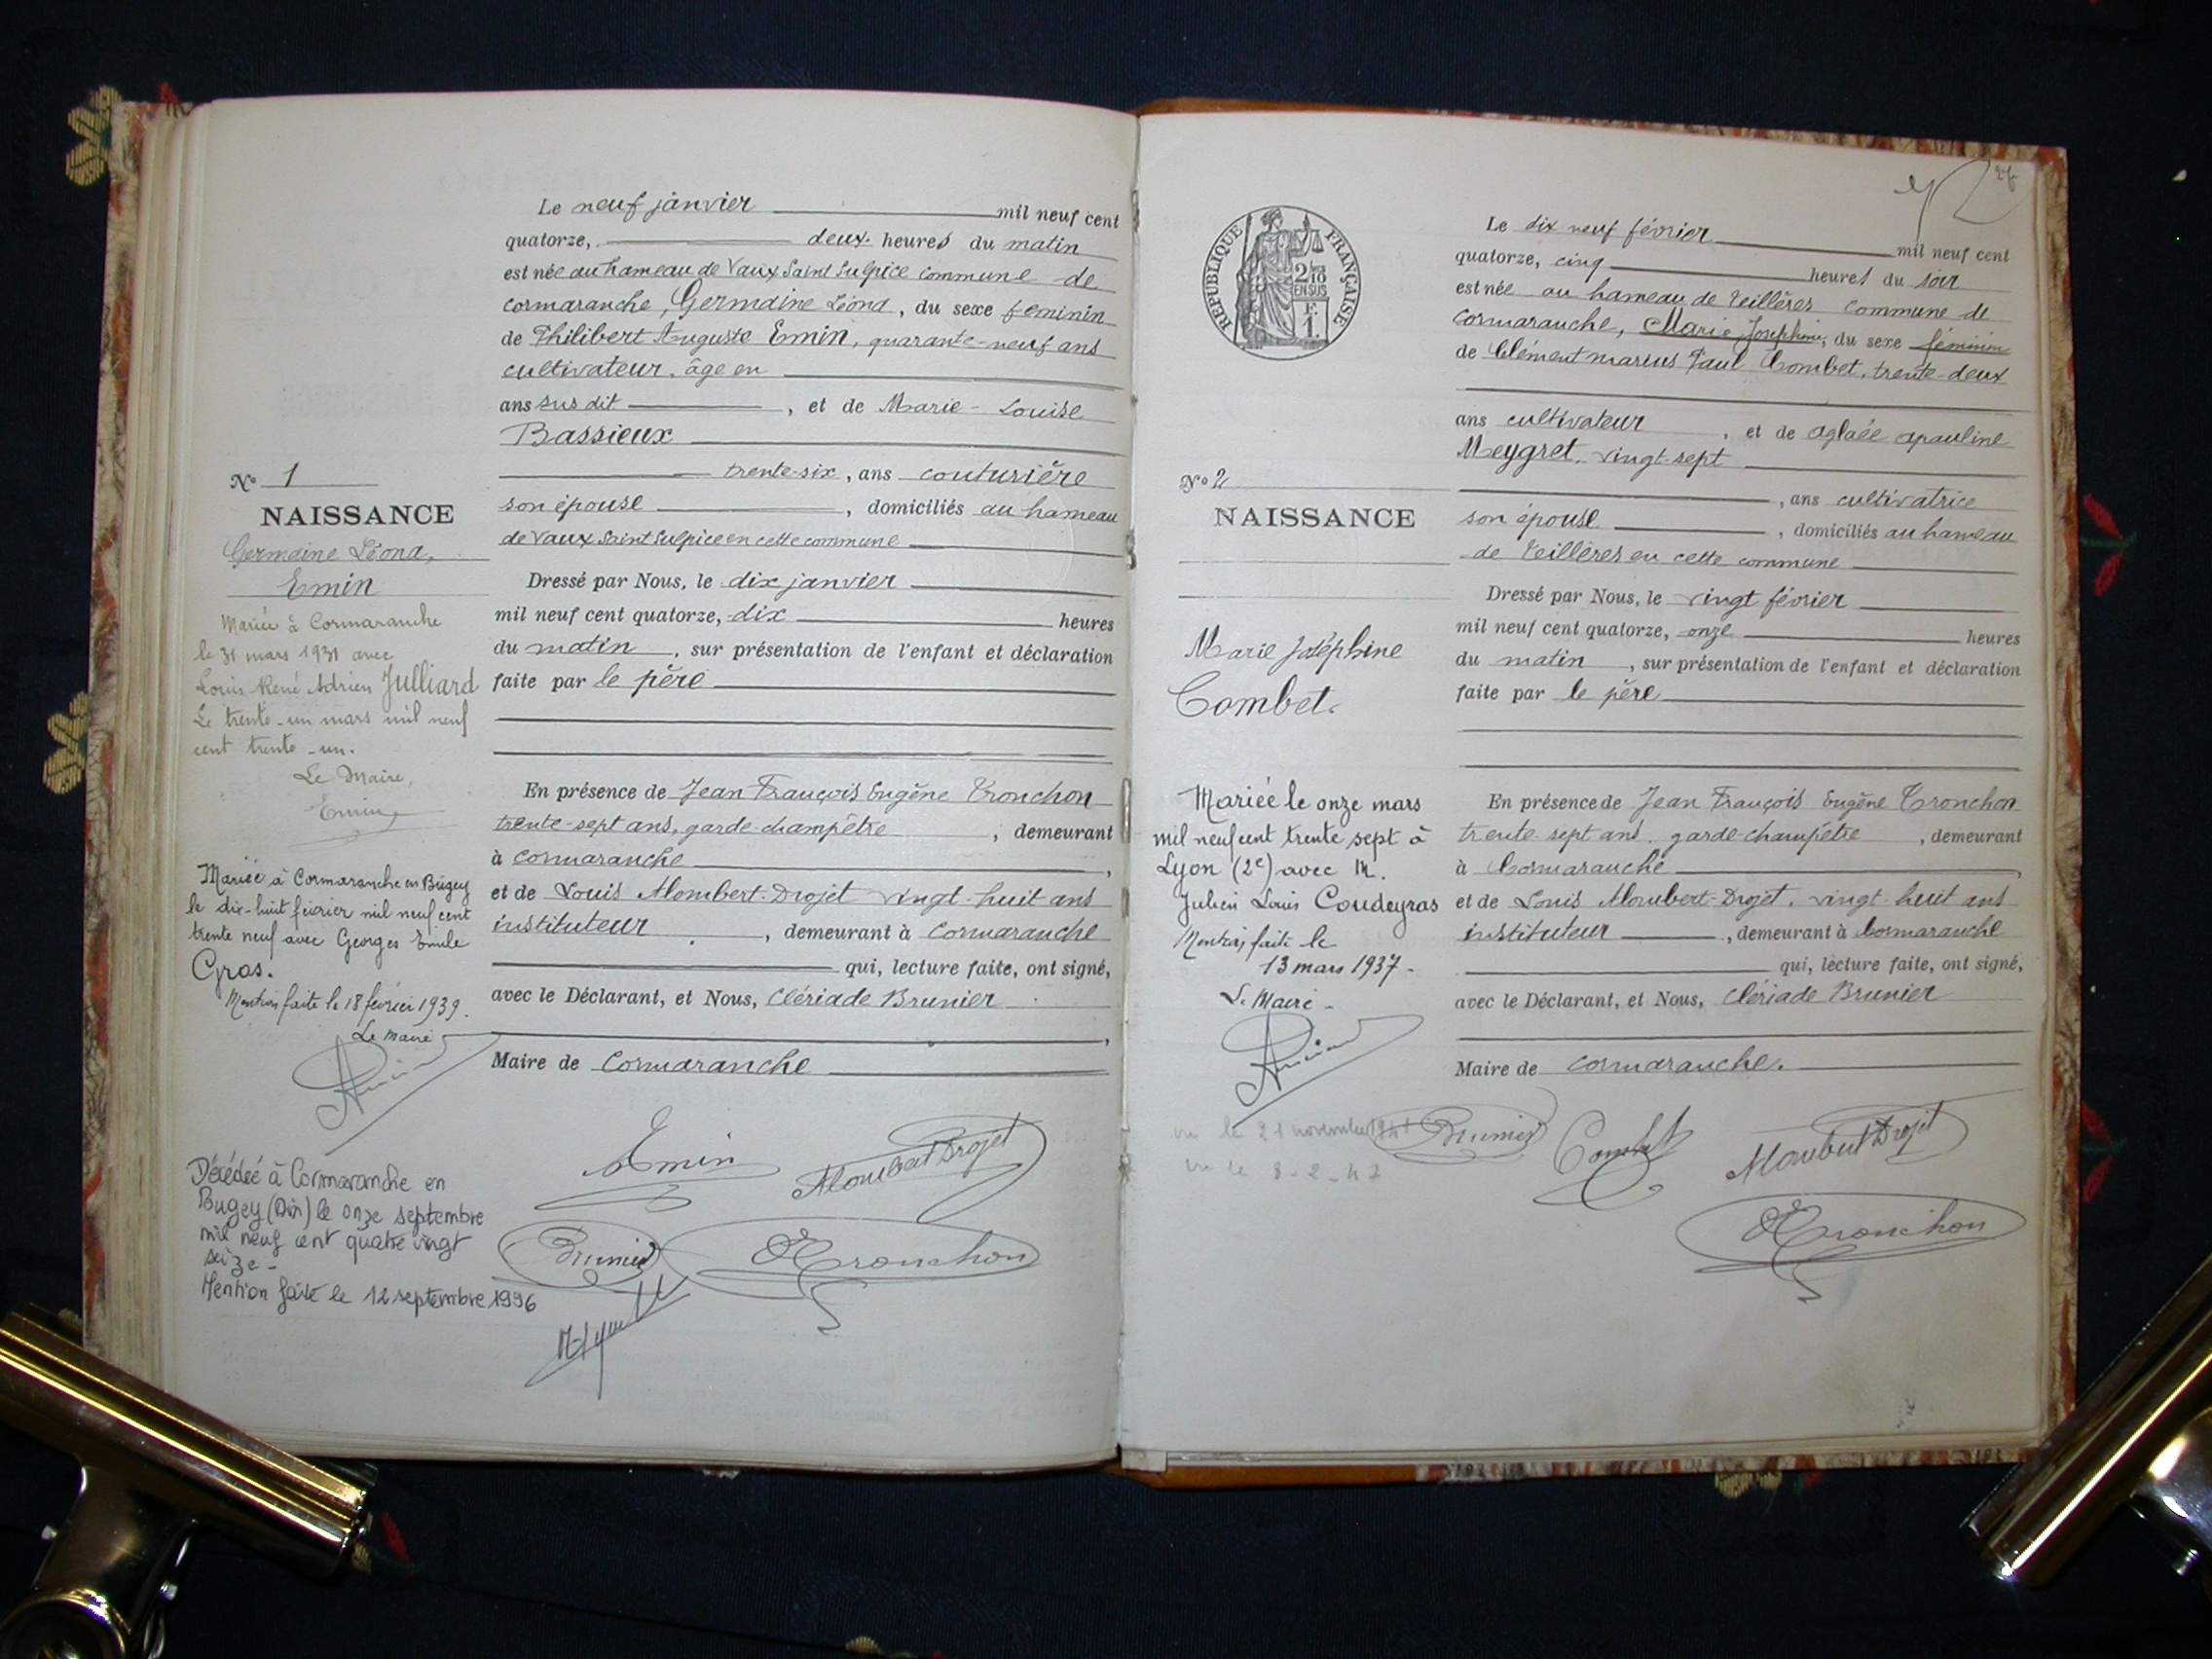 Le neuf janvier mil neuf cent
quatorze, deux heures du matin
est née au hameau de Vaux Saint Sulpice commune de
cormaranche, Germaine Léona, du sexe féminin
de Philibert Auguste Emin, quarante-neuf ans
cultivateur, âge en
ans susdit, et de Marie-Louise
Bassieux
trente-six, ans couturière
son épouse, domiciliés au hameau
de Vaux Saint Sulpice en cette commune
Dressé par Nous, le dix janvier
mil neuf cent quatorze, dix heures
du matin, sur présentation de l'enfant et déclaration
faite par le père
En présence de Jean François Eugène Tronchon
trente-sept ans, garde-champêtre, demeurant
à cormaranche,
et de Louis Alombert-Drojet vingt-huit ans
instituteur, demeurant à cormaranche
qui, lecture faite, ont signé,
avec le Déclarant, et Nous, Clériade Brunier
Maire de Cormaranche
Emin
Alombert Drojet
Brunier
Tronchon
N° 1
NAISSANCE
Germaine Léona,
Emin
Mariée à Cormaranche
le 31 mars 1931 avec
Louis René Adrien Julliard
Le trente-un mars mil neuf
cent trente-un.
Le Maire,
Emin
Mariée à Cormaranche en Bugey
le dix-huit février mil neuf cent
trente neuf avec Georges Emile
Gros.
Mention faite le 18 février 1939.
Le maire
Décédée à Cormaranche en
Bugey (Ain) le onze septembre
mil neuf cent quatre vingt
seize-
Mention faite le 12 septembre 1996
REPUBLIQUE FRANÇAISE
2/10
EN SUS
F.
1.
Le dix neuf février mil neuf cent
quatorze, cinq heures du soir
est née au hameau de Veillères commune de
Cormaranche, Marie Joséphine, du sexe féminin
de Clément marius Paul Combet, trente-deux
ans cultivateur, et de aglaée apauline
Meygret, vingt-sept
, ans cultivatrice
son épouse, domiciliés au hameau
de Veillères en cette commune
Dressé par Nous, le vingt février
mil neuf cent quatorze, onze heures
du matin, sur présentation de l'enfant et déclaration
faite par le père
En présence de Jean François Eugène Tronchon
trente-sept ans, garde-champêtre, demeurant
à Cormaranche,
et de Louis Alombert-Drojet, vingt-huit ans
instituteur, demeurant à Cormaranche
qui, lecture faite, ont signé,
avec le Déclarant, et Nous, Clériade Brunier
Maire de cormaranche.
Brunier
Combet
Alombert Drojet
Tronchon
N° 2
NAISSANCE
Marie Joséphine
Combet.
Mariée le onze mars
mil neuf cent trente sept à
Lyon (2e) avec M.
Julien Louis Coudeyras
Mention faite le
13 mars 1937-
Le Maire-
vu le 21 novembre 1941
vu le 8-2-47